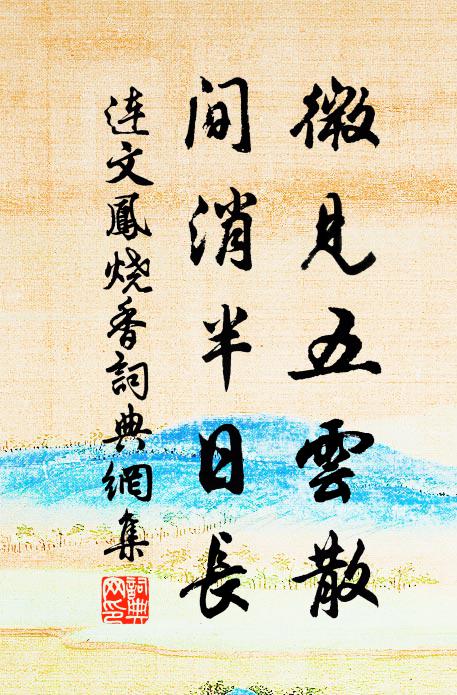 微見五雲散
间消半日長
连文鳳烧香詞典網集
詞典网印